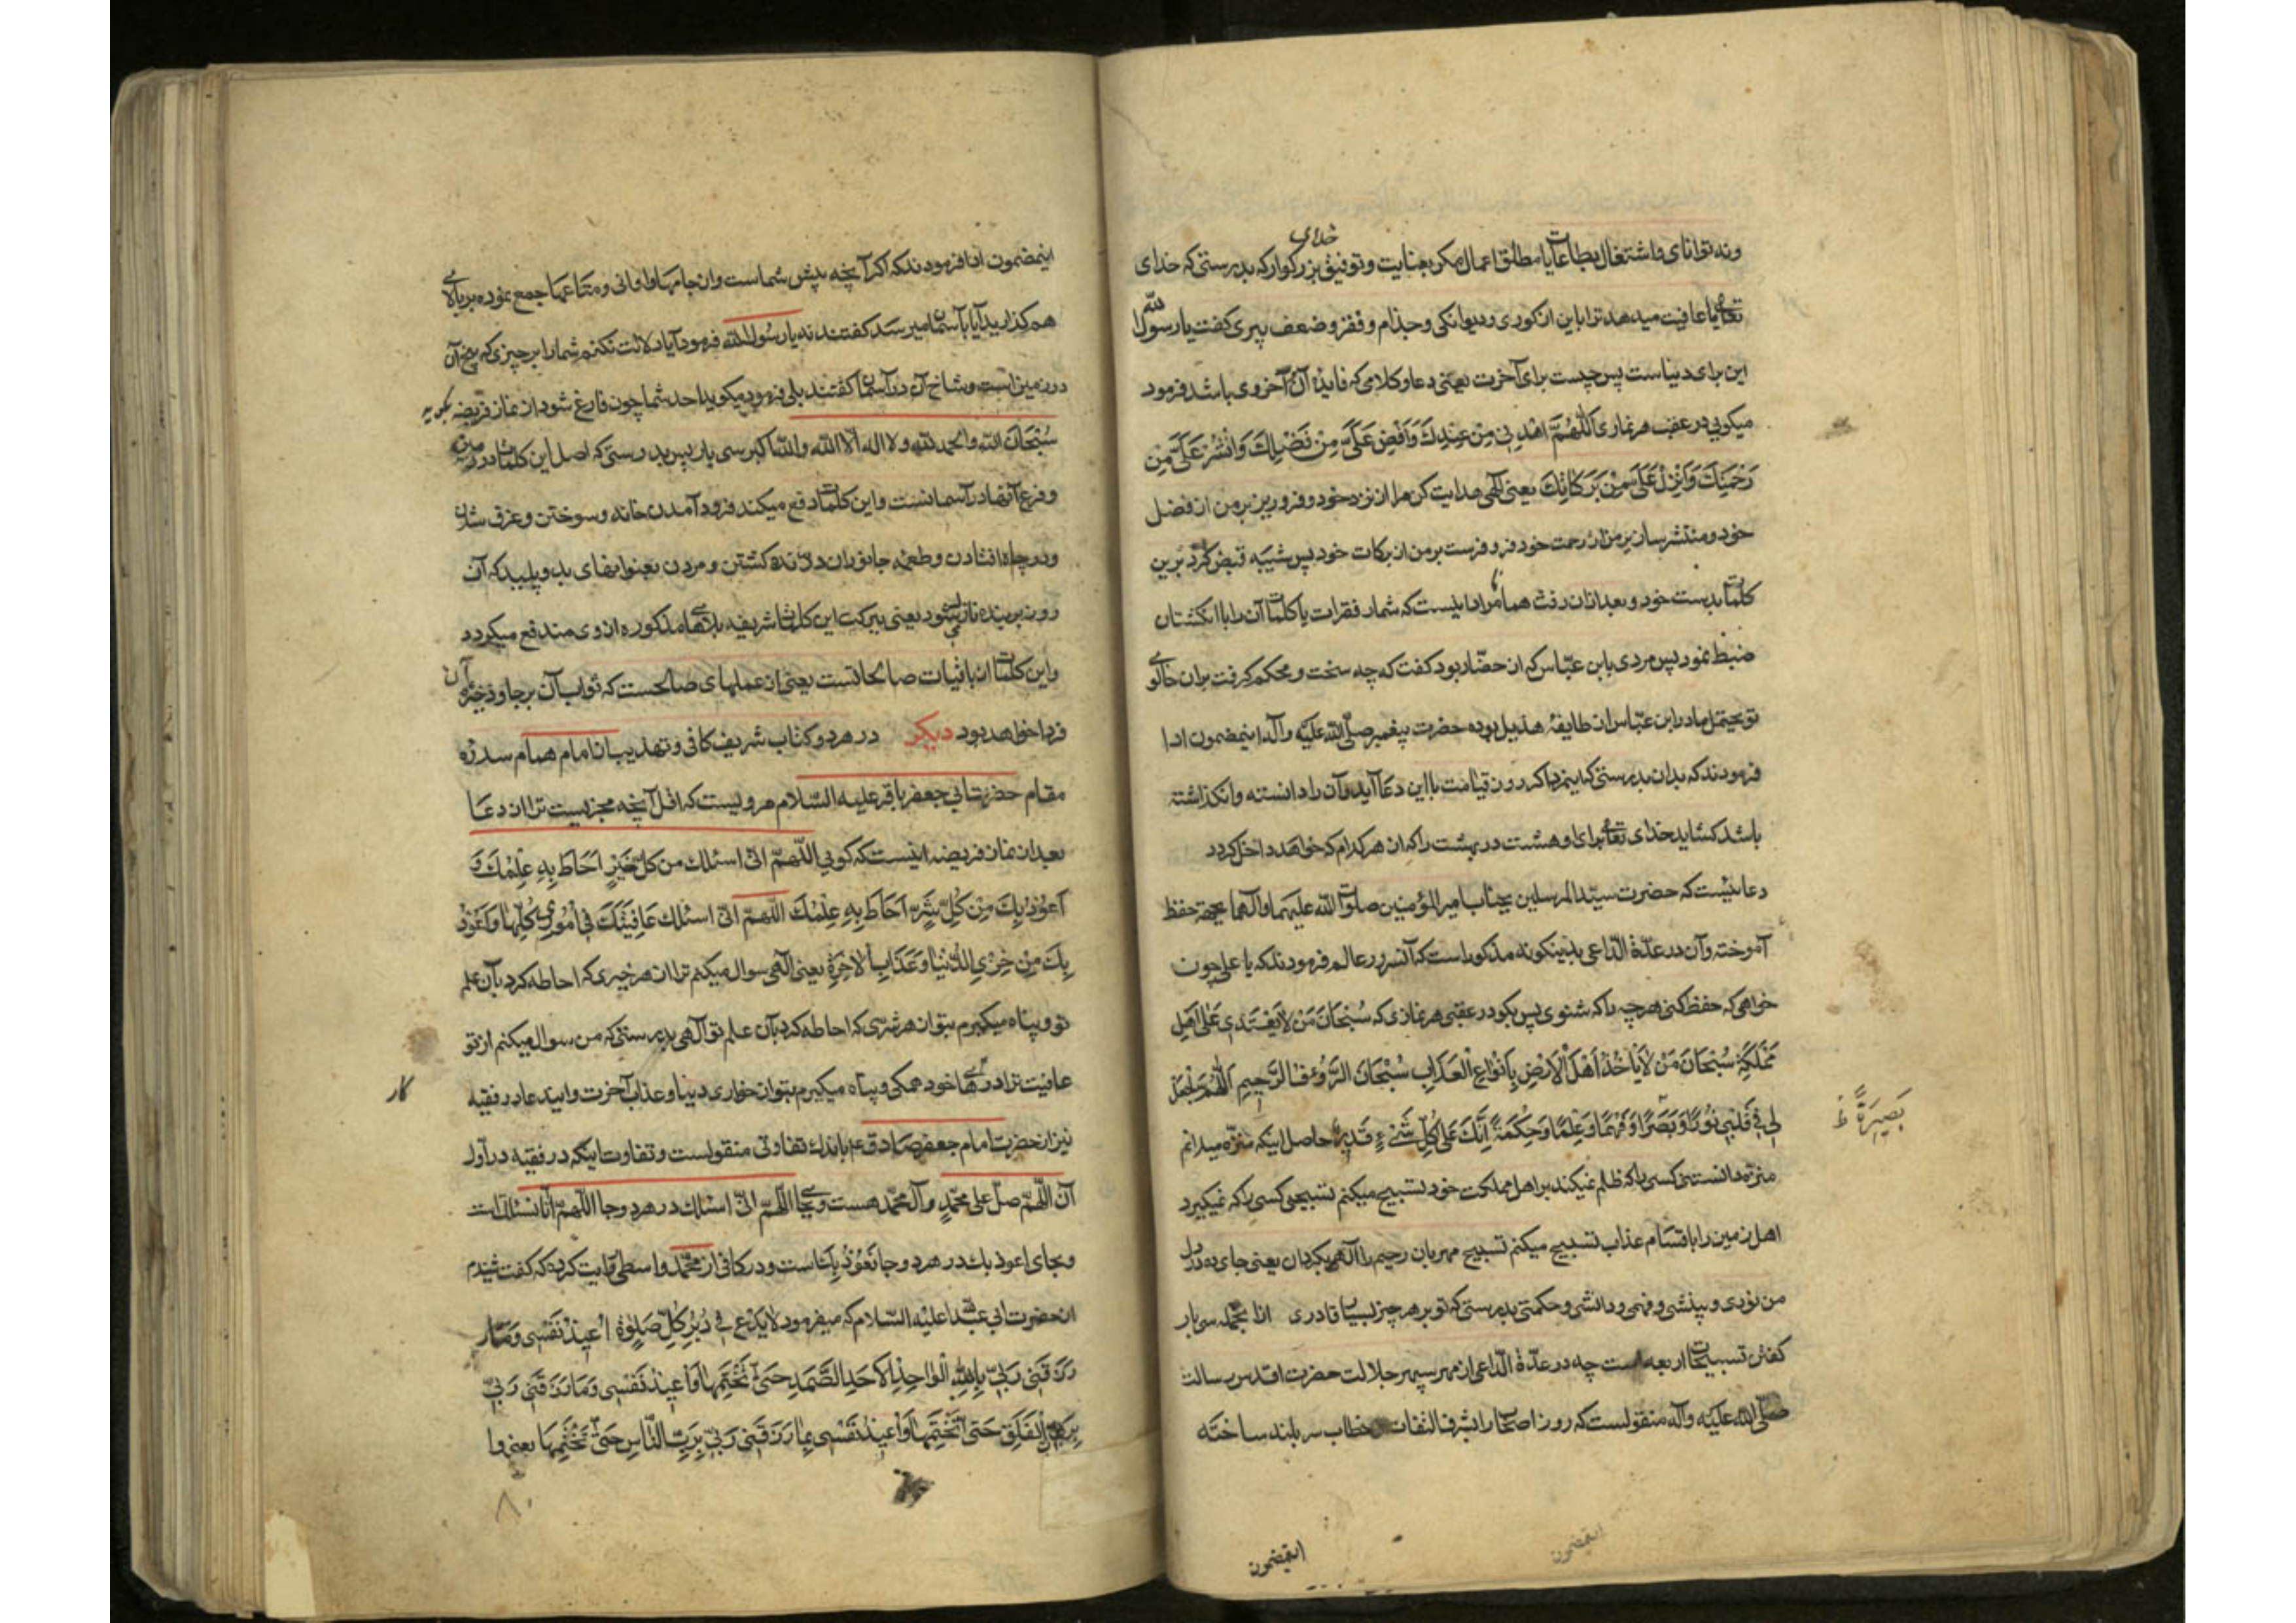 خدای
ونه توانای واشتغال بطاعات یا مطلق اعمال مکر بعنایت وتوفیق بزرکوار که بدرستی که خدای
تعالی یا عافیت میدهد ترا باین از کوری ودیوانکی وجذام وفقر وضعف پیری کفت یا رسول الله
این برای دنیاست پس چیست برای آخرت یعنی دعا وکلامی که فایده آن آخروی باشد فرمود
میکویی در عقب هر نمازی اَللّٰهُمَّ اهْدِنِی مِنْ عِنْدِكَ وَاَفِضْ عَلَیَّ مِنْ فَضْلِكَ وَانْشُرْ عَلَیَّ مِن
رَحْمَتِكَ وَاَنْزِلْ عَلَیَّ مِنْ بَرَكَاتِكَ یعنی الهی هدایت کن مرا از نزد خود وفرو ریز بر من از فضل
خود ومنتشر ساز بر من از رحمت خود وفرو فرست بر من از برکات خود پس شیبه قبض کرد برین
کلمات بدست خود وبعد ازان رفت همانا مراد اینست که شمار فقرات یا کلمات آن را با انکشتان
ضبط نمود پس مردی بابن عباس که از حضار بود کفت که چه سخت ومحکم کرفت بران خالوی
تو یحتمل مادر ابن عباس از طایفۀ هذیل بوده حضرت پیغمبر صلّی الله علیه وآله اینمضمون ادا
فرمودند که بدان بدرستی که اینمرد اکر روز قیامت با این دعا آید وآن را دانسته وانکذاشته
باشد کشاید خدای تعالی برای او هشت در بهشت را که از هر کدام که خواهد داخل کردد
دعائیست که حضرت سیّد المرسلین بجناب امیر المؤمنین صلوات الله علیهما وآلهما بجهة حفظ
آموخته وآن در عدّة الدّاعی بدینکونه مذکور است که آنسرور عالم فرمودند که یا علی چون
خواهی که حفظ کنی هر چه را که شنوی پس بکو در عقب هر نمازی که سُبْحَانَ مَنْ لَا یَعْتَدِی عَلٰی اَهْلِ
مَمْلَكَتِهِ سُبْحَانَ مَنْ لَا یَأْخُذُ اَهْلَ الْاَرْضِ بِاَنْوَاعِ الْعَذَابِ سُبْحَانَ الرَّؤُفِ الرَّحِیمِ اَللّٰهُمَّ اجْعَلْ
لِی فِی قَلْبِی نُورًا وَبَصَرًا وَفَهْمًا وَعِلْمًا وَحِكْمَةً اِنَّكَ عَلٰی كُلِّ شَیْءٍ قَدِیرٌ حاصل اینکه منزّه میدانم
بَصِیرَةً ظ
منزّه دانستنی کسی را که ظلم نمیکند بر اهل مملکت خود تسبیح میکنم تسبیحی کسی را که نمیکیرد
اهل زمین را باقسام عذاب تسبیح میکنم تسبیح مهربان رحیم را الهی بکردان یعنی جای ده در دل
من نوری وبینشی وفهمی ودانشی وحکمتی بدرستی که تو بر هر چیز بسیار قادری ازانجمله سی بار
کفتن تسبیحات اربعه است چه در عدّة الدّاعی از مهر سپهر جلالت حضرت اقدس رسالت
صلّی الله علیه وآله منقولست که روزی اصحاب را بشرف التفات خطاب سر بلند ساخته
اینمضمون
اینمضمون ادا فرمودند که اکر آنچه پیش شماست از جامها واوانی ومتاعها جمع نموده بر بالای
هم کذارید آیا بآسمان میرسد کفتند نه یا رسول الله فرمود آیا دلالت نکنم شما را بر چیزی که بیخ آن
در زمین است وشاخ آن در آسمان کفتند بلی فرمود میکوید احد شما چون فارغ شود از نماز فریضه
سُبْحَانَ الله والحمد لله ولا اله الا الله والله اکبر سی بار پس بدرستی که اصل این کلمات در زمین
وفرع آنها در آسمانست واین کلمات دفع میکند فرود آمدن خانه وسوختن وغرق شدن
ودر چاه افتادن وطعمه جانوران درنده کشتن ومردن بعنوانهای بد وپلید که آن
روز بر بنده نازل میشود یعنی ببرکت این کلمات شریفه بلاهای مذکوره از وی مندفع میکردد
واین کلمات از باقیات صالحاتست یعنی از عملهای صالحست که ثواب آن بر جا وذخیره آن
فردا خواهد بود دیکر در هر دو کتاب شریف کافی وتهذیب از امام همام سدره
مقام حضرت ابی جعفر باقر علیه السّلام مرویست که اقل آنچه مجزیست ترا از دعا
بعد از نماز فریضه اینست که کویی اللّهمّ انّی اسئلك من كلّ خَیْرٍ اَحَاطَ بِهِ عِلْمُكَ وَ
اَعُوذُ بِكَ مِنْ كُلِّ شَرٍّ اَحَاطَ بِهِ عِلْمُكَ اللّهمّ انّی اسئلك عَافِیَتَكَ فِی اُمُورِی كُلِّهَا وَاَعُوذُ
بِكَ مِنْ خِزْیِ الدُّنْیَا وَعَذَابِ الْاٰخِرَةِ یعنی الهی سوال میکنم ترا از هر خیری که احاطه کرد بآن علم
تو وپناه میکیرم بتو از هر شرّی که احاطه کرد بآن علم تو الهی بدرستی که من سوال میکنم از تو
عافیت ترا در های خود همکی وپناه میکیرم بتو از خواری دنیا وعذاب آخرت واین دعا در فقیه
کار
نیز از حضرت امام جعفر صادق ع باندك تفاوتی منقولست وتفاوت اینکه در فقیه در اول
آن اللّهمّ صلّ علی محمّدٍ وآل محمّد هست وبجای اللّهمّ انّی اسئلك در هر دو جا اللّهمّ انّا نسئلك است
وبجای اعوذ بك در هر دو جا نَعُوذُ بِكَ است ودر کافی از محمّد واسطی روایت کرده که کفت شنیدم
از حضرت ابی عبد الله علیه السّلام که میفرمود لا یَدَعْ فی دُبُرِ كُلِّ صَلٰوةٍ اُعِیذُ نَفْسِی وَمَا
رَزَقَنِی رَبِّی بِاللّٰهِ الْوَاحِدِ الْاَحَدِ الصَّمَدِ حَتّٰی تَخْتِمَهَا وَاُعِیذُ نَفْسِی وَمَا رَزَقَنِی رَبِّی
بِرَبِّ الْفَلَقِ حَتّٰی تَخْتِمَهَا وَاُعِیذُ نَفْسِی وَمَا رَزَقَنِی رَبِّی بِرَبِّ النَّاسِ حَتّٰی تَخْتِمَهَا یعنی وا
۸۰